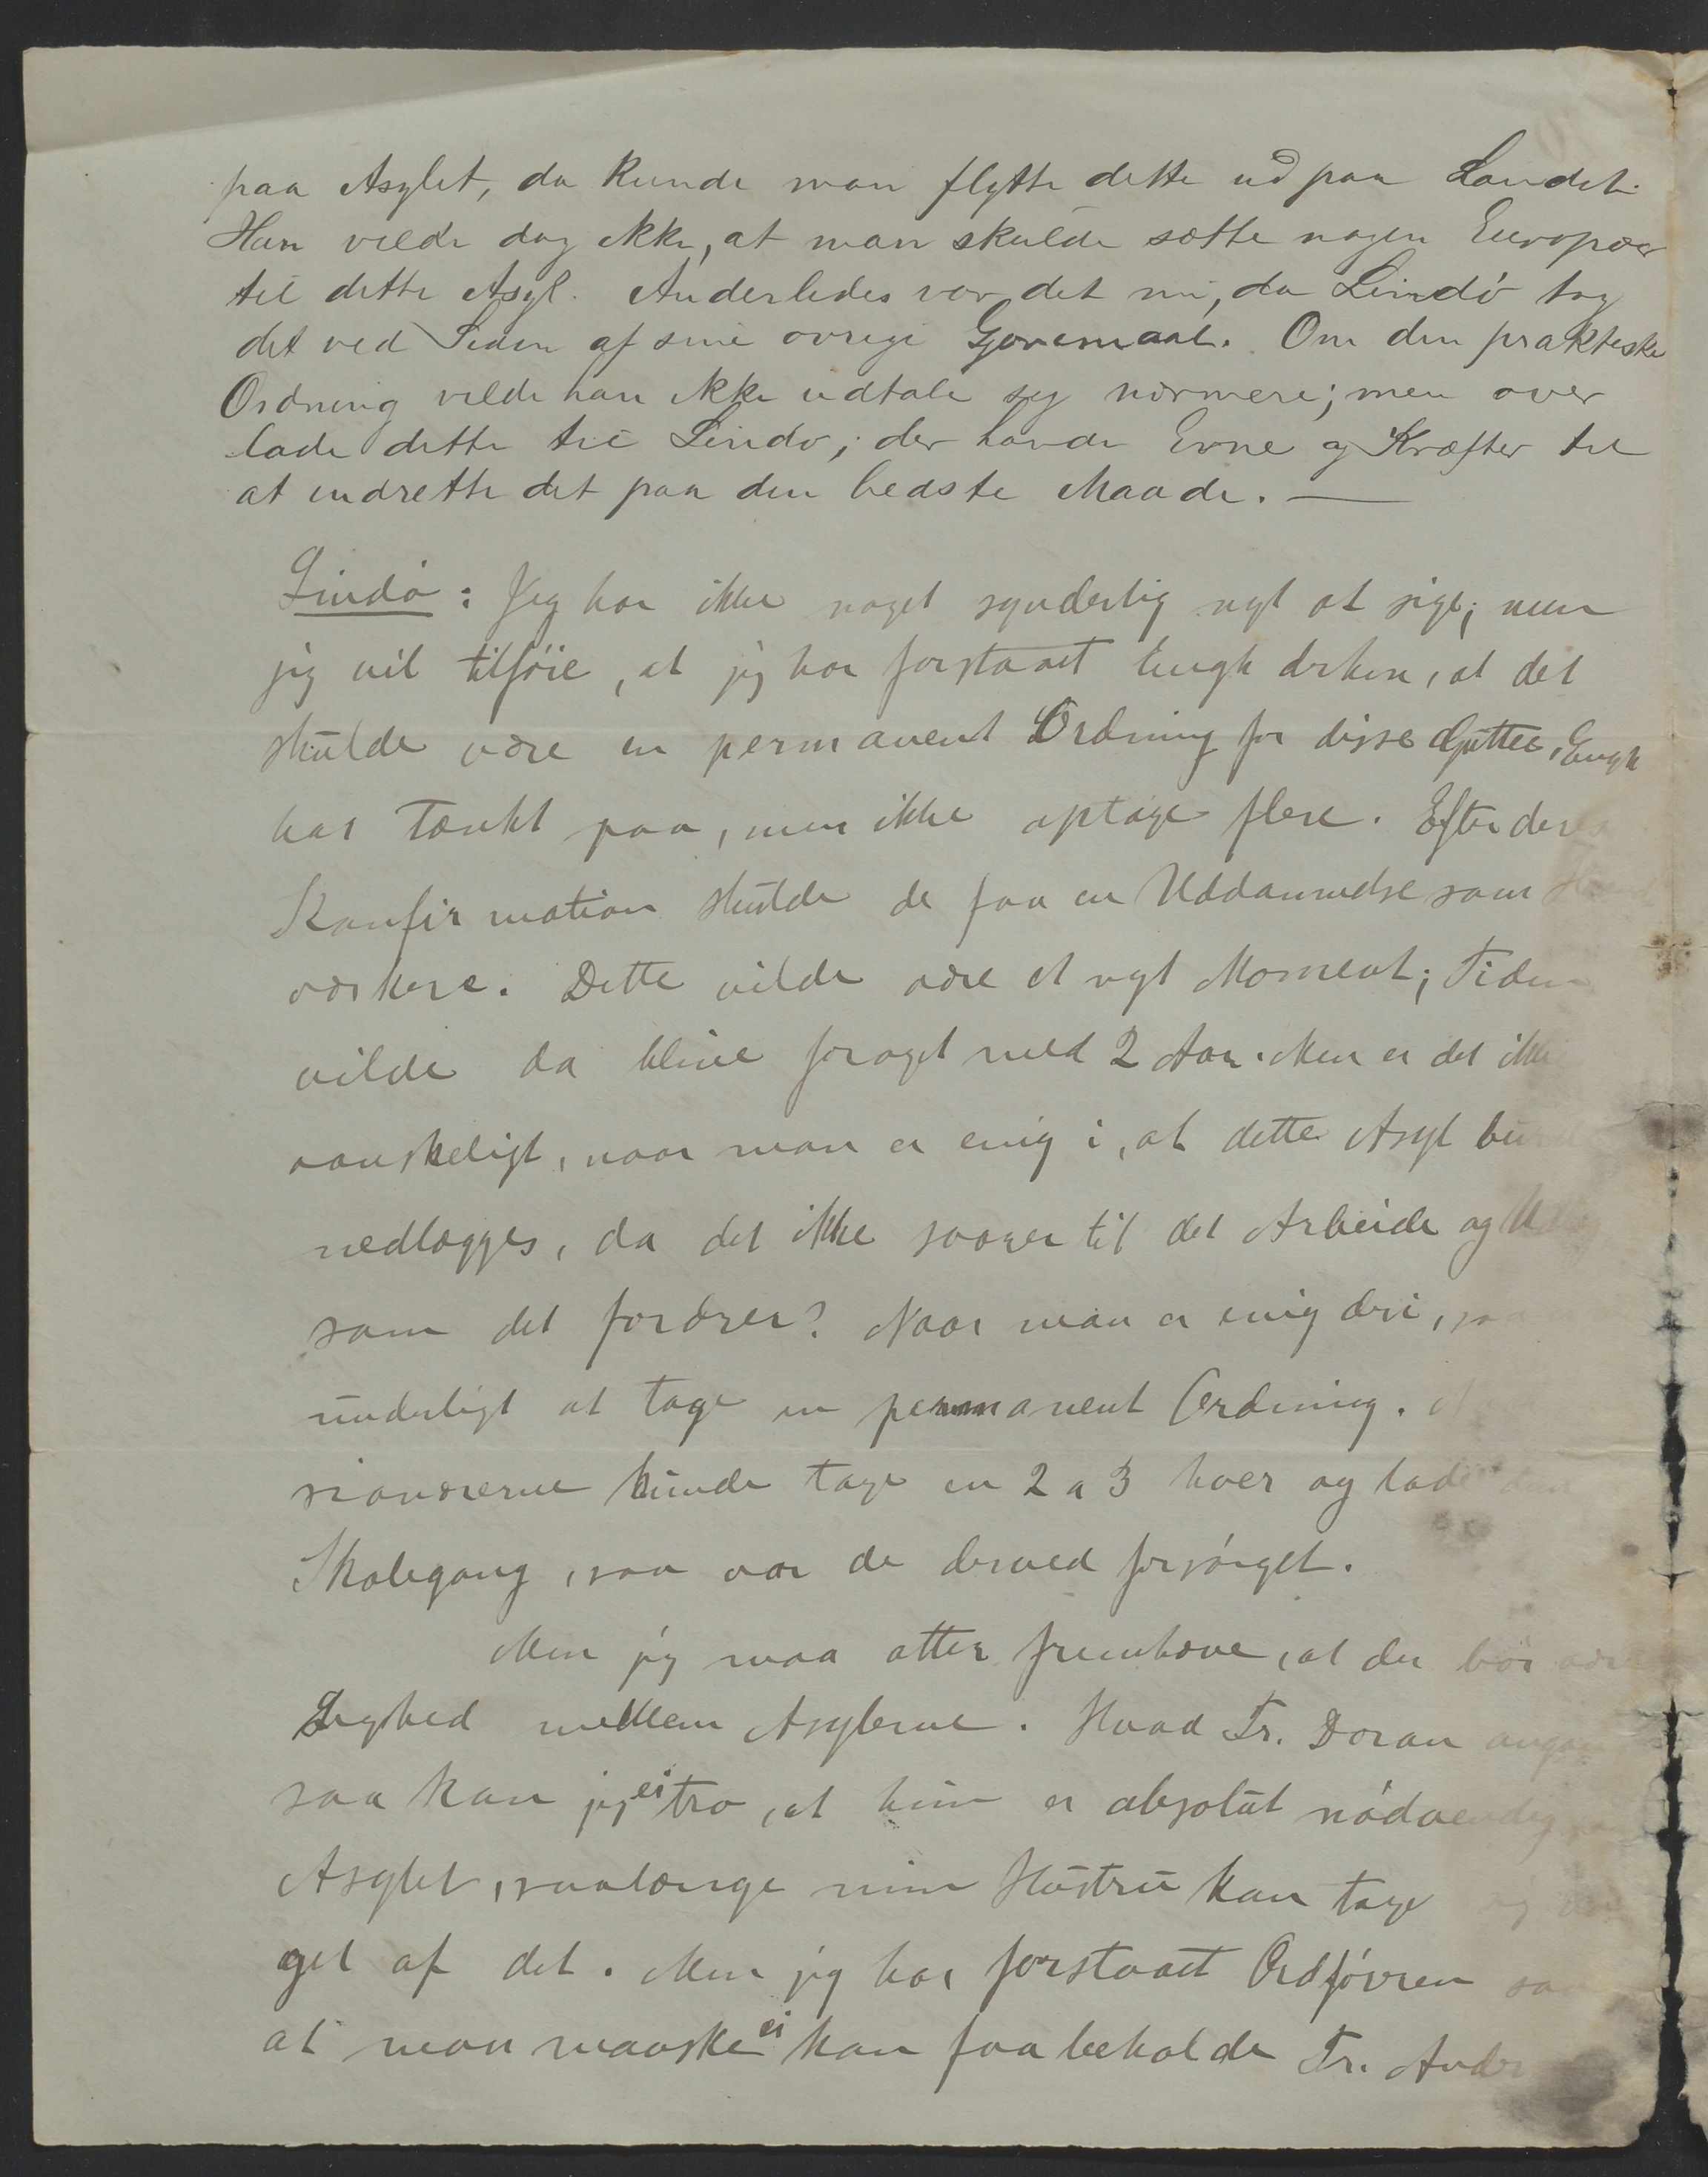 paa Asylet, da kunde man flytte dette ud paa Landet.
Han vilde dog ikke, at man skulde sætte nogen Europæer
til dette Asyl. Anderledes var det nu, da Lindø tog
det ved Siden af sine øvrige Gjøremaal. Om den praktiske
Ordning vilde han ikke udtale sig nærmere; men over
lade dette til Lindø; der havde Evne og Kræfter til
at indrette det paa den bedste Maade. —
Lindø: Jeg har ikke noget synderlig nyt at sige; men
jeg vil tilføie, at jeg har forstaaet Engh derhen, at det
skulde være en permanent Ordning for disse Gutter, Engh
har tænkt paa, men ikke optage flere. Efter deres
Konfirmation skulde de faa en Uddannelse som
værkere. Dette vilde være et nyt Moment; Tiden
vilde da blive forøget med 2 Aar. Men er det ikke
vanskeligt, naar man er enig i, at dette Asyl
nedlægges, da det ikke svarer til det Arbeide og
som det fordrer? Naar man er enig deri,
underligt at tage en permanent Ordning.
sionærerne kunde tage en 2 a 3 hver og lade dem
Skolegang, saa var de derved forsørget.
Men jeg maa atter fremhæve, at der bør være
Lighed mellem Asylerne. Hvad Fr. Doran angaar
saa kan jeg ei tro, at hun er absolut nødvendig
Asylet, saalænge min Hustru kan tage
get af det. Men jeg har forstaaet Ordføreren
at man maaske ei kan faa beholde Fr.